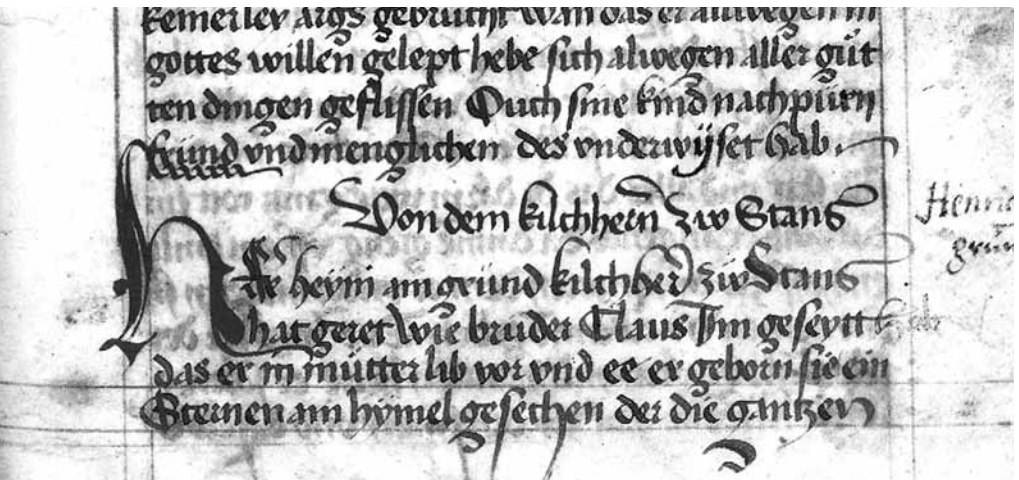 keinerley args gebrucht wan das er allwegen in
gottes willen gelept hebe sich alwegen aller gůt
ten dingen geflissen Ouch sine kind nachpůrn
fründ vnd menglichen des vnderwijset hab.
Von dem kilchhern zů Stans
Her heyni am grund kilchher zů Stans
hat geret wie bruder Claus Im geseytt hab
das er in můtter lib vor vnd ee er geborn sie ein
Sternen am hymel gesechen der die gantzen
Henric
grun